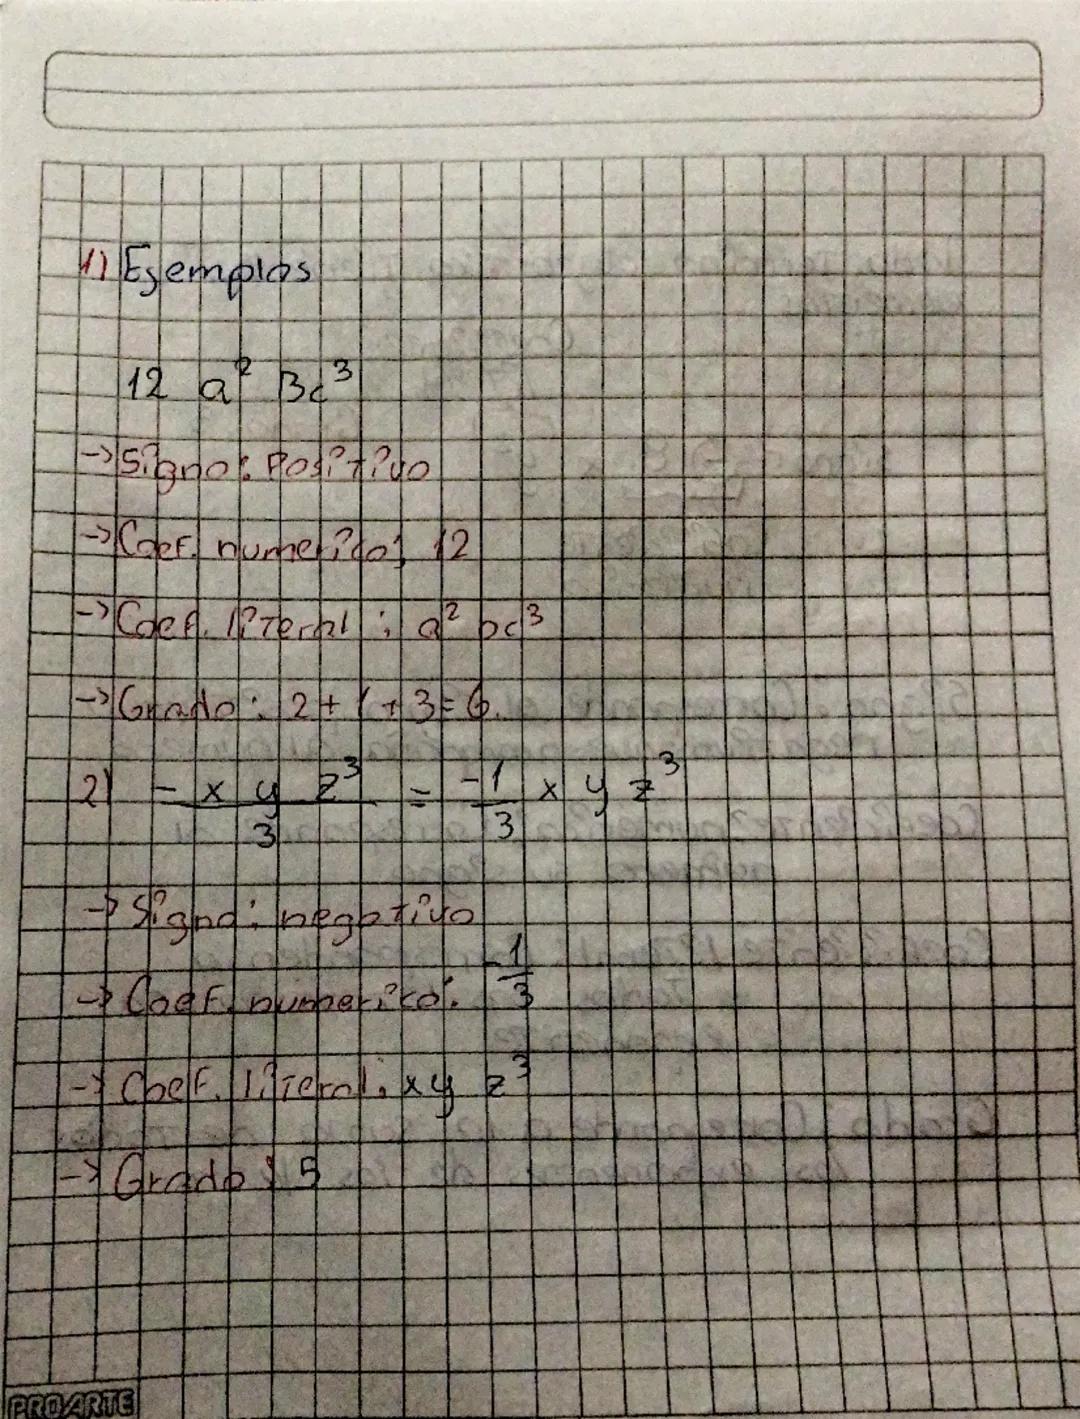 1) Ejemplos
12 a² Bc³
→ Signo: Positivo
→ Coef. numerico: 12
→ Coef. literal: a² bc³
→ Grado: 2 + 1 + 3 = 6.
2) - x y z³ / 3 = -1/3 x y z³
→ Signo: negativo
→ Coef. numerico: -1/3
→ Coef. literal: xy z³
→ Grado: 5
PROARTE